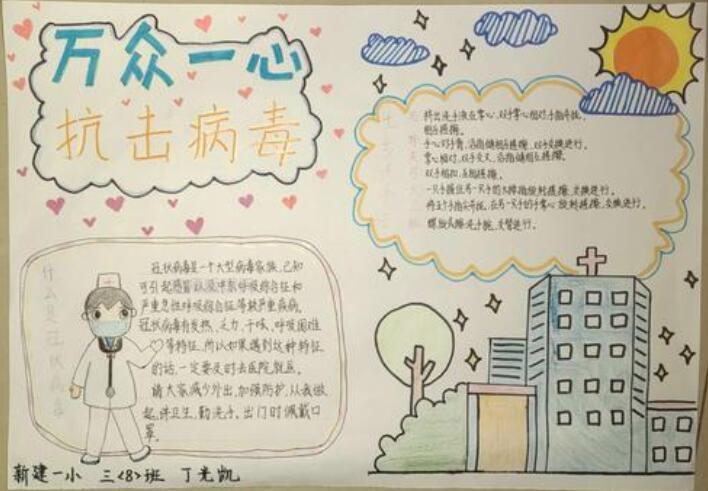 万众一心
抗击病毒
挤出洗手液在掌心,双手掌心相对手指并拢,
相互搓擦。
手心对手背,沿指缝相互搓擦,双手交换进行。
掌心相对,双手交叉,沿指缝相互搓擦。
双手相扣,互相搓擦。
一只手握住另一只手的大拇指旋转搓擦,交换进行。
将五个手指尖并拢,在另一只手的手掌心旋转搓擦,交换进行。
螺旋式擦洗手腕,交替进行。
什么是冠状病毒
冠状病毒是一个大型病毒家族,已知
可引起感冒以及中东呼吸综合征和
严重急性呼吸综合征等较严重疾病。
冠状病毒有发热、乏力、干咳、呼吸困难
等特征,所以如果遇到这种特征
的话,一定要及时去医院就医。
请大家减少外出,加强防护,从我做
起,讲卫生,勤洗手,出门时佩戴口
罩。
新建一小 三<8>班 丁光凯